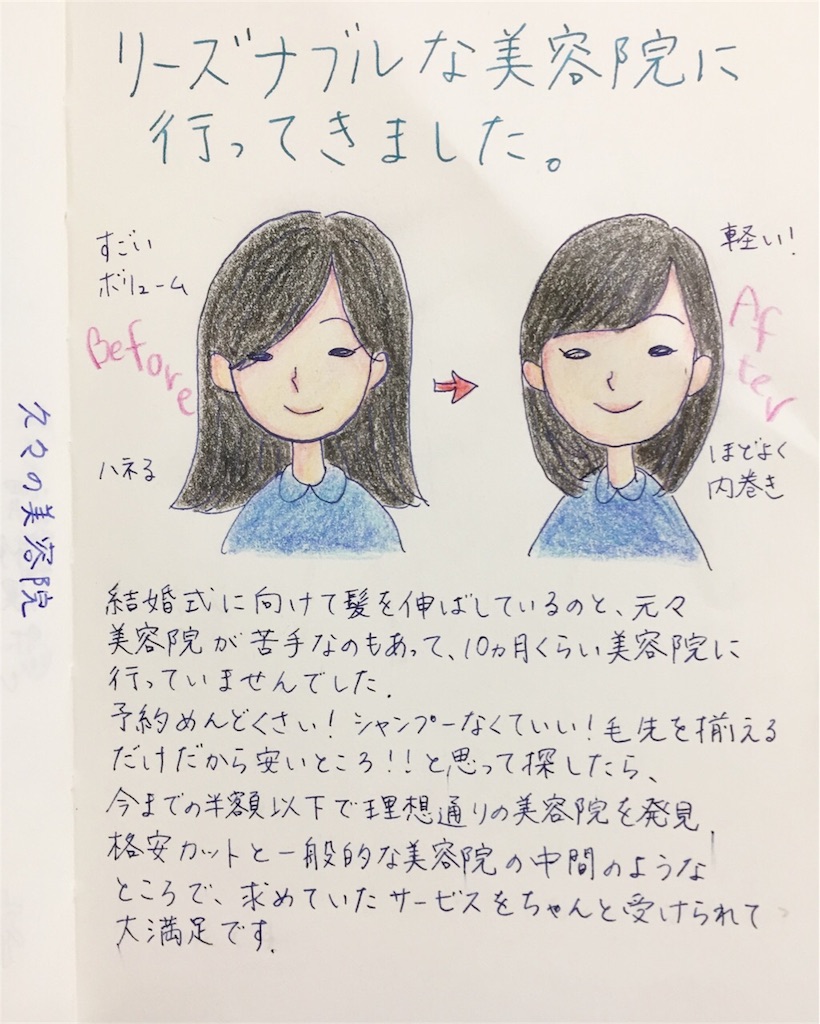 リーズナブルな美容院に
行ってきました。
すごい
ボリューム
Before
ハネる
軽い!
After
ほどよく
内巻き
久々の美容院
結婚式に向けて髪を伸ばしているのと、元々
美容院が苦手なのもあって、10ヵ月くらい美容院に
行っていませんでした.
予約めんどくさい!シャンプーなくていい!毛先を揃える
だけだから安いところ!!と思って探したら、
今までの半額以下で理想通りの美容院を発見.
格安カットと一般的な美容院の中間のような
ところで、求めていたサービスをちゃんと受けられて
大満足です.